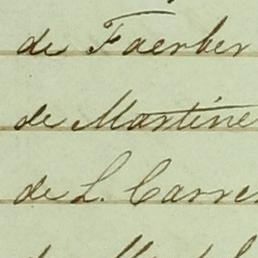 de Faerber
de Martine
de L. Carre